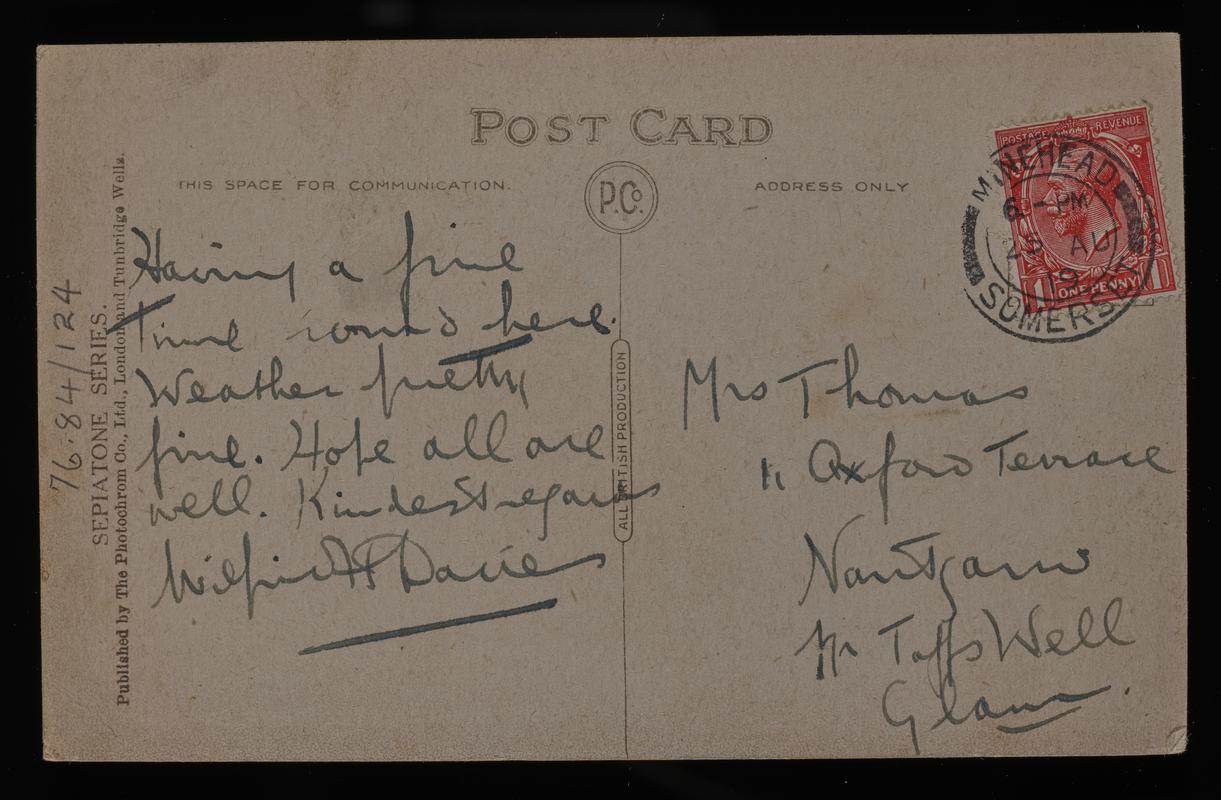 POST CARD
THIS SPACE FOR COMMUNICATION.
P.Co.
ADDRESS ONLY
POSTAGE REVENUE
ONE PENNY
1 1
MINEHEAD
6 - PM
AU
19
SOMERSET
Having a fine
Time round here.
Weather pretty
fine. Hope all are
well. Kindest regards
Wilfrid Davies
ALL BRITISH PRODUCTION
Mrs Thomas
11 Oxford Terrace
Nantgarw
Nr Taffs Well
Glam.
76.84/124
SEPIATONE SERIES.
Published by The Photochrom Co., Ltd., London and Tunbridge Wells.